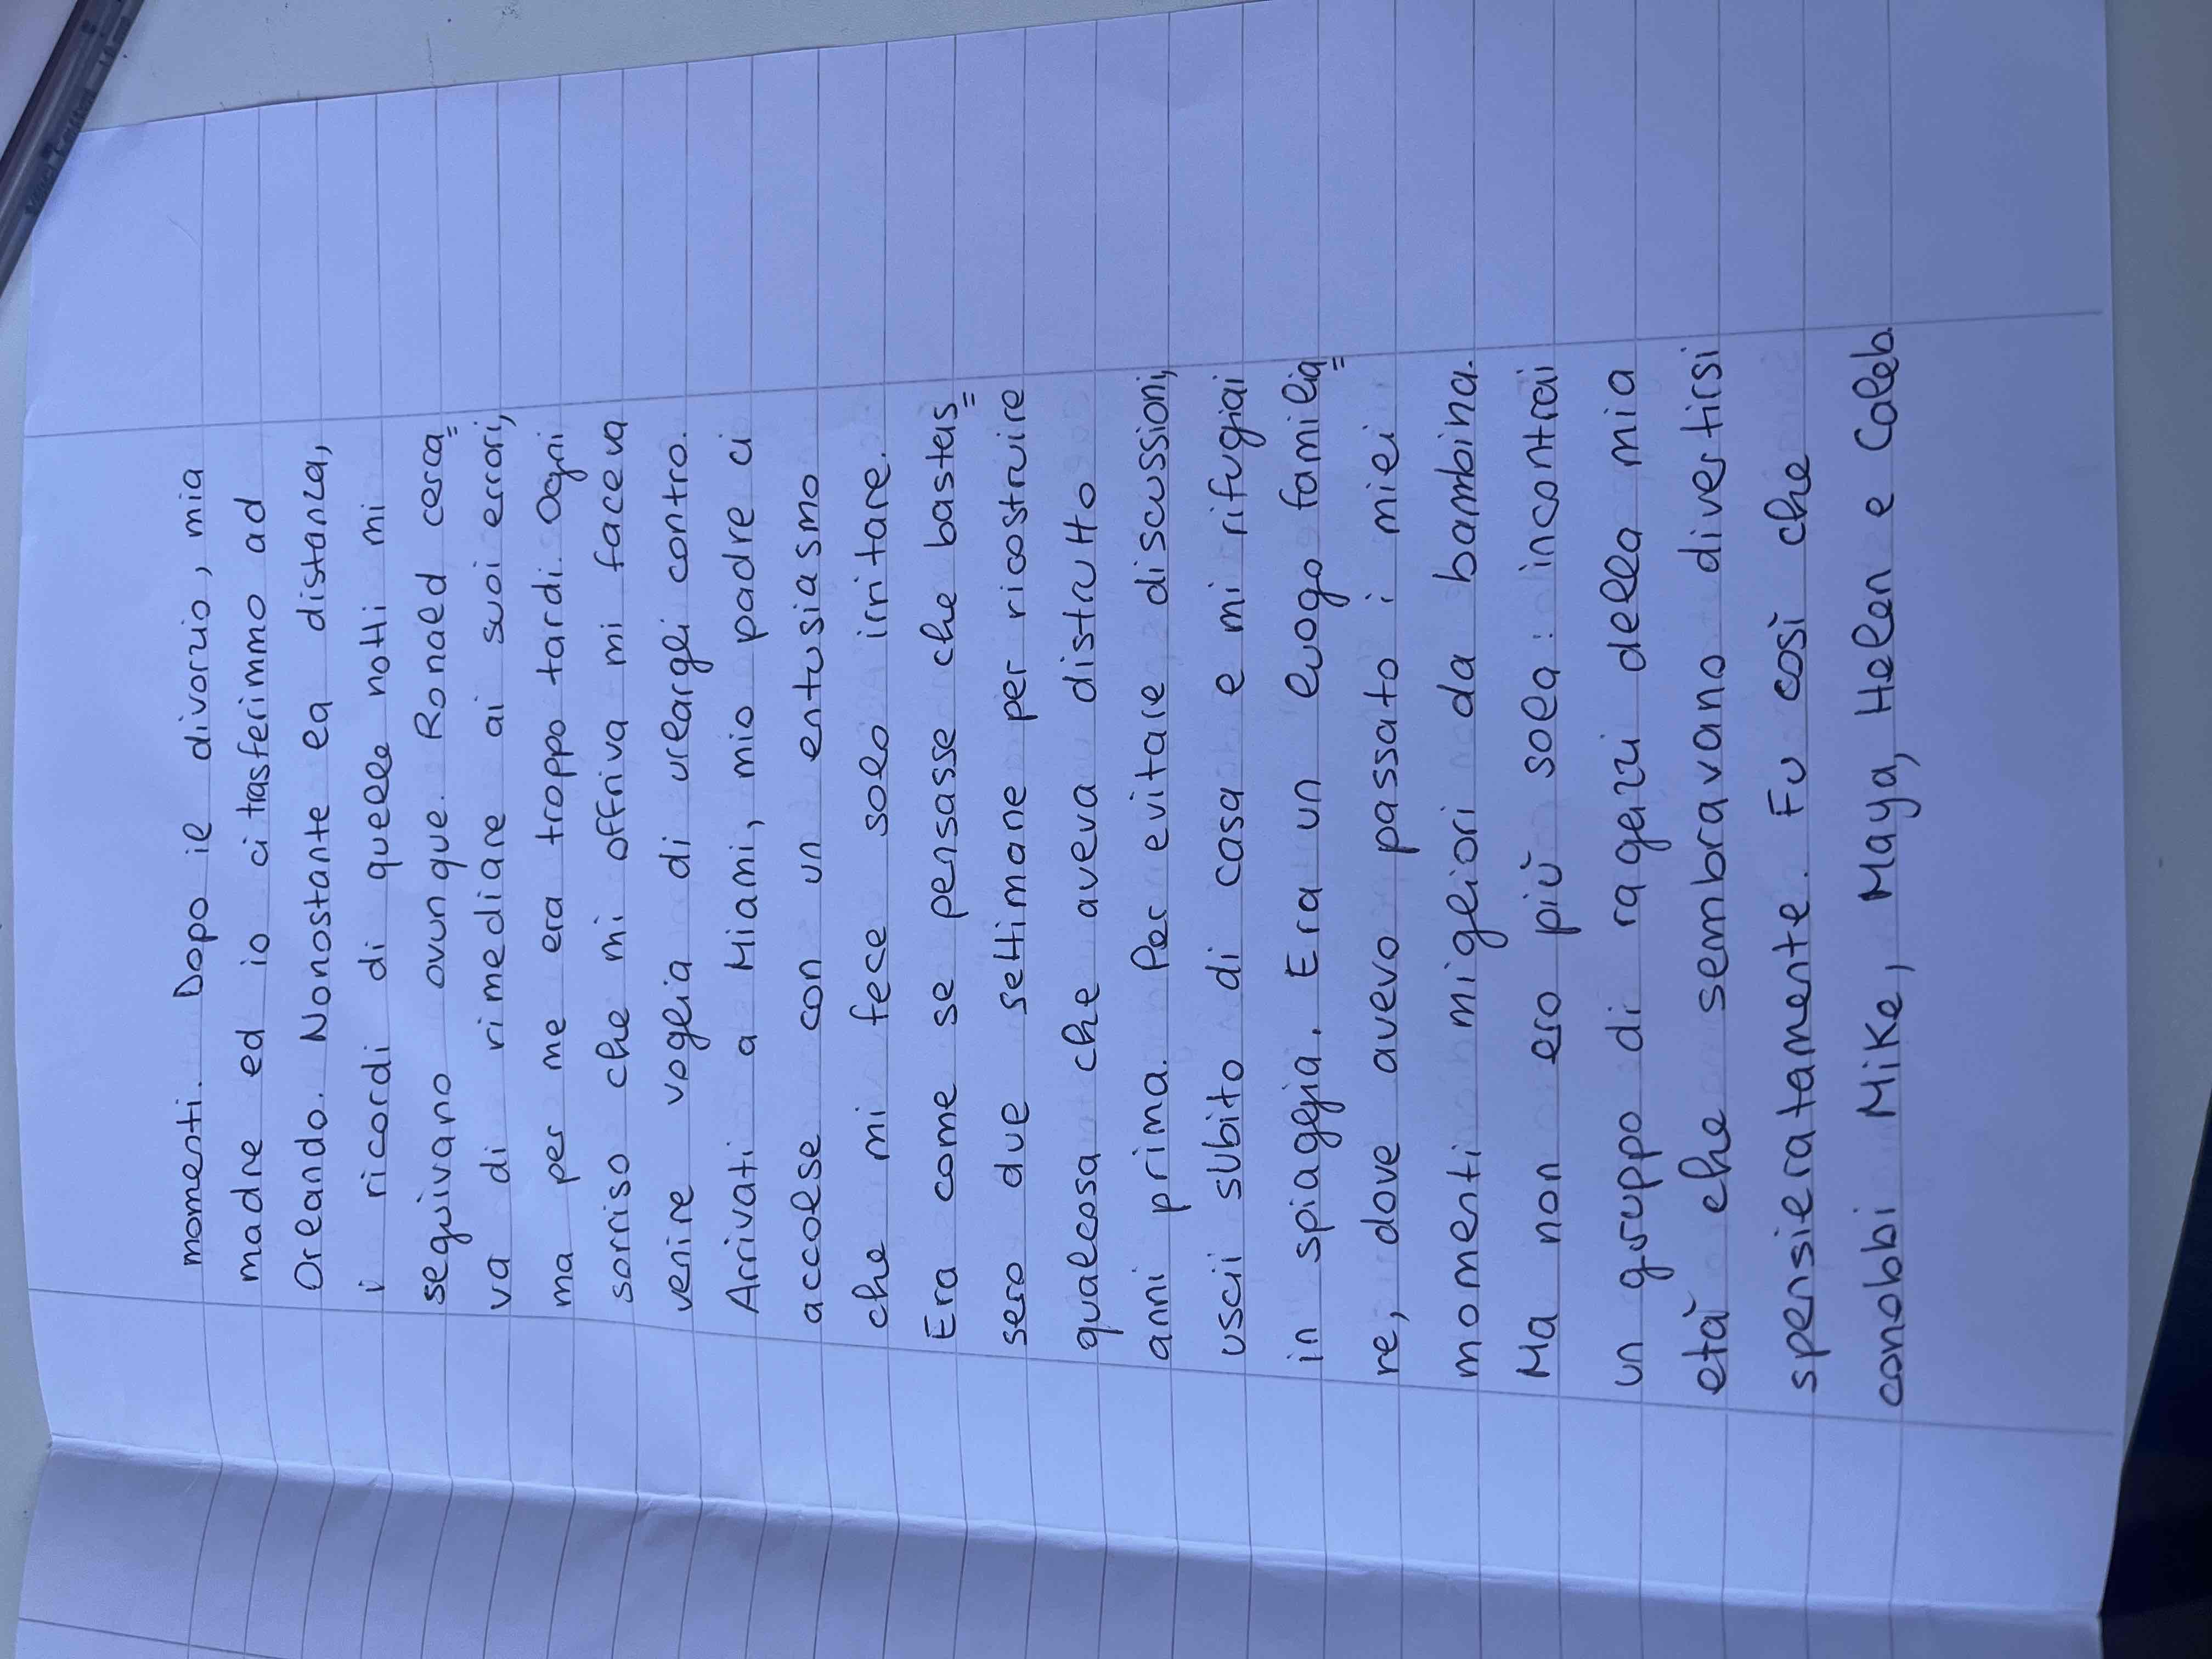 momenti. Dopo il divorzio, mia
madre ed io ci trasferimmo ad
Orlando. Nonostante la distanza,
i ricordi di quelle notti mi
seguivano ovunque. Ronald cerca=
va di rimediare ai suoi errori,
ma per me era troppo tardi. Ogni
sorriso che mi offriva mi faceva
venire voglia di urlargli contro.
Arrivati a Miami, mio padre ci
accolse con un entusiasmo
che mi fece solo irritare.
Era come se pensasse che bastas=
sero due settimane per ricostruire
qualcosa che aveva distrutto
anni prima. Per evitare discussioni,
uscii subito di casa e mi rifugiai
in spiaggia. Era un luogo familia=
re, dove avevo passato i miei
momenti migliori da bambina.
Ma non ero più sola: incontrai
un gruppo di ragazzi della mia
età che sembravano divertirsi
spensieratamente. Fu così che
conobbi Mike, Maya, Helen e Caleb.